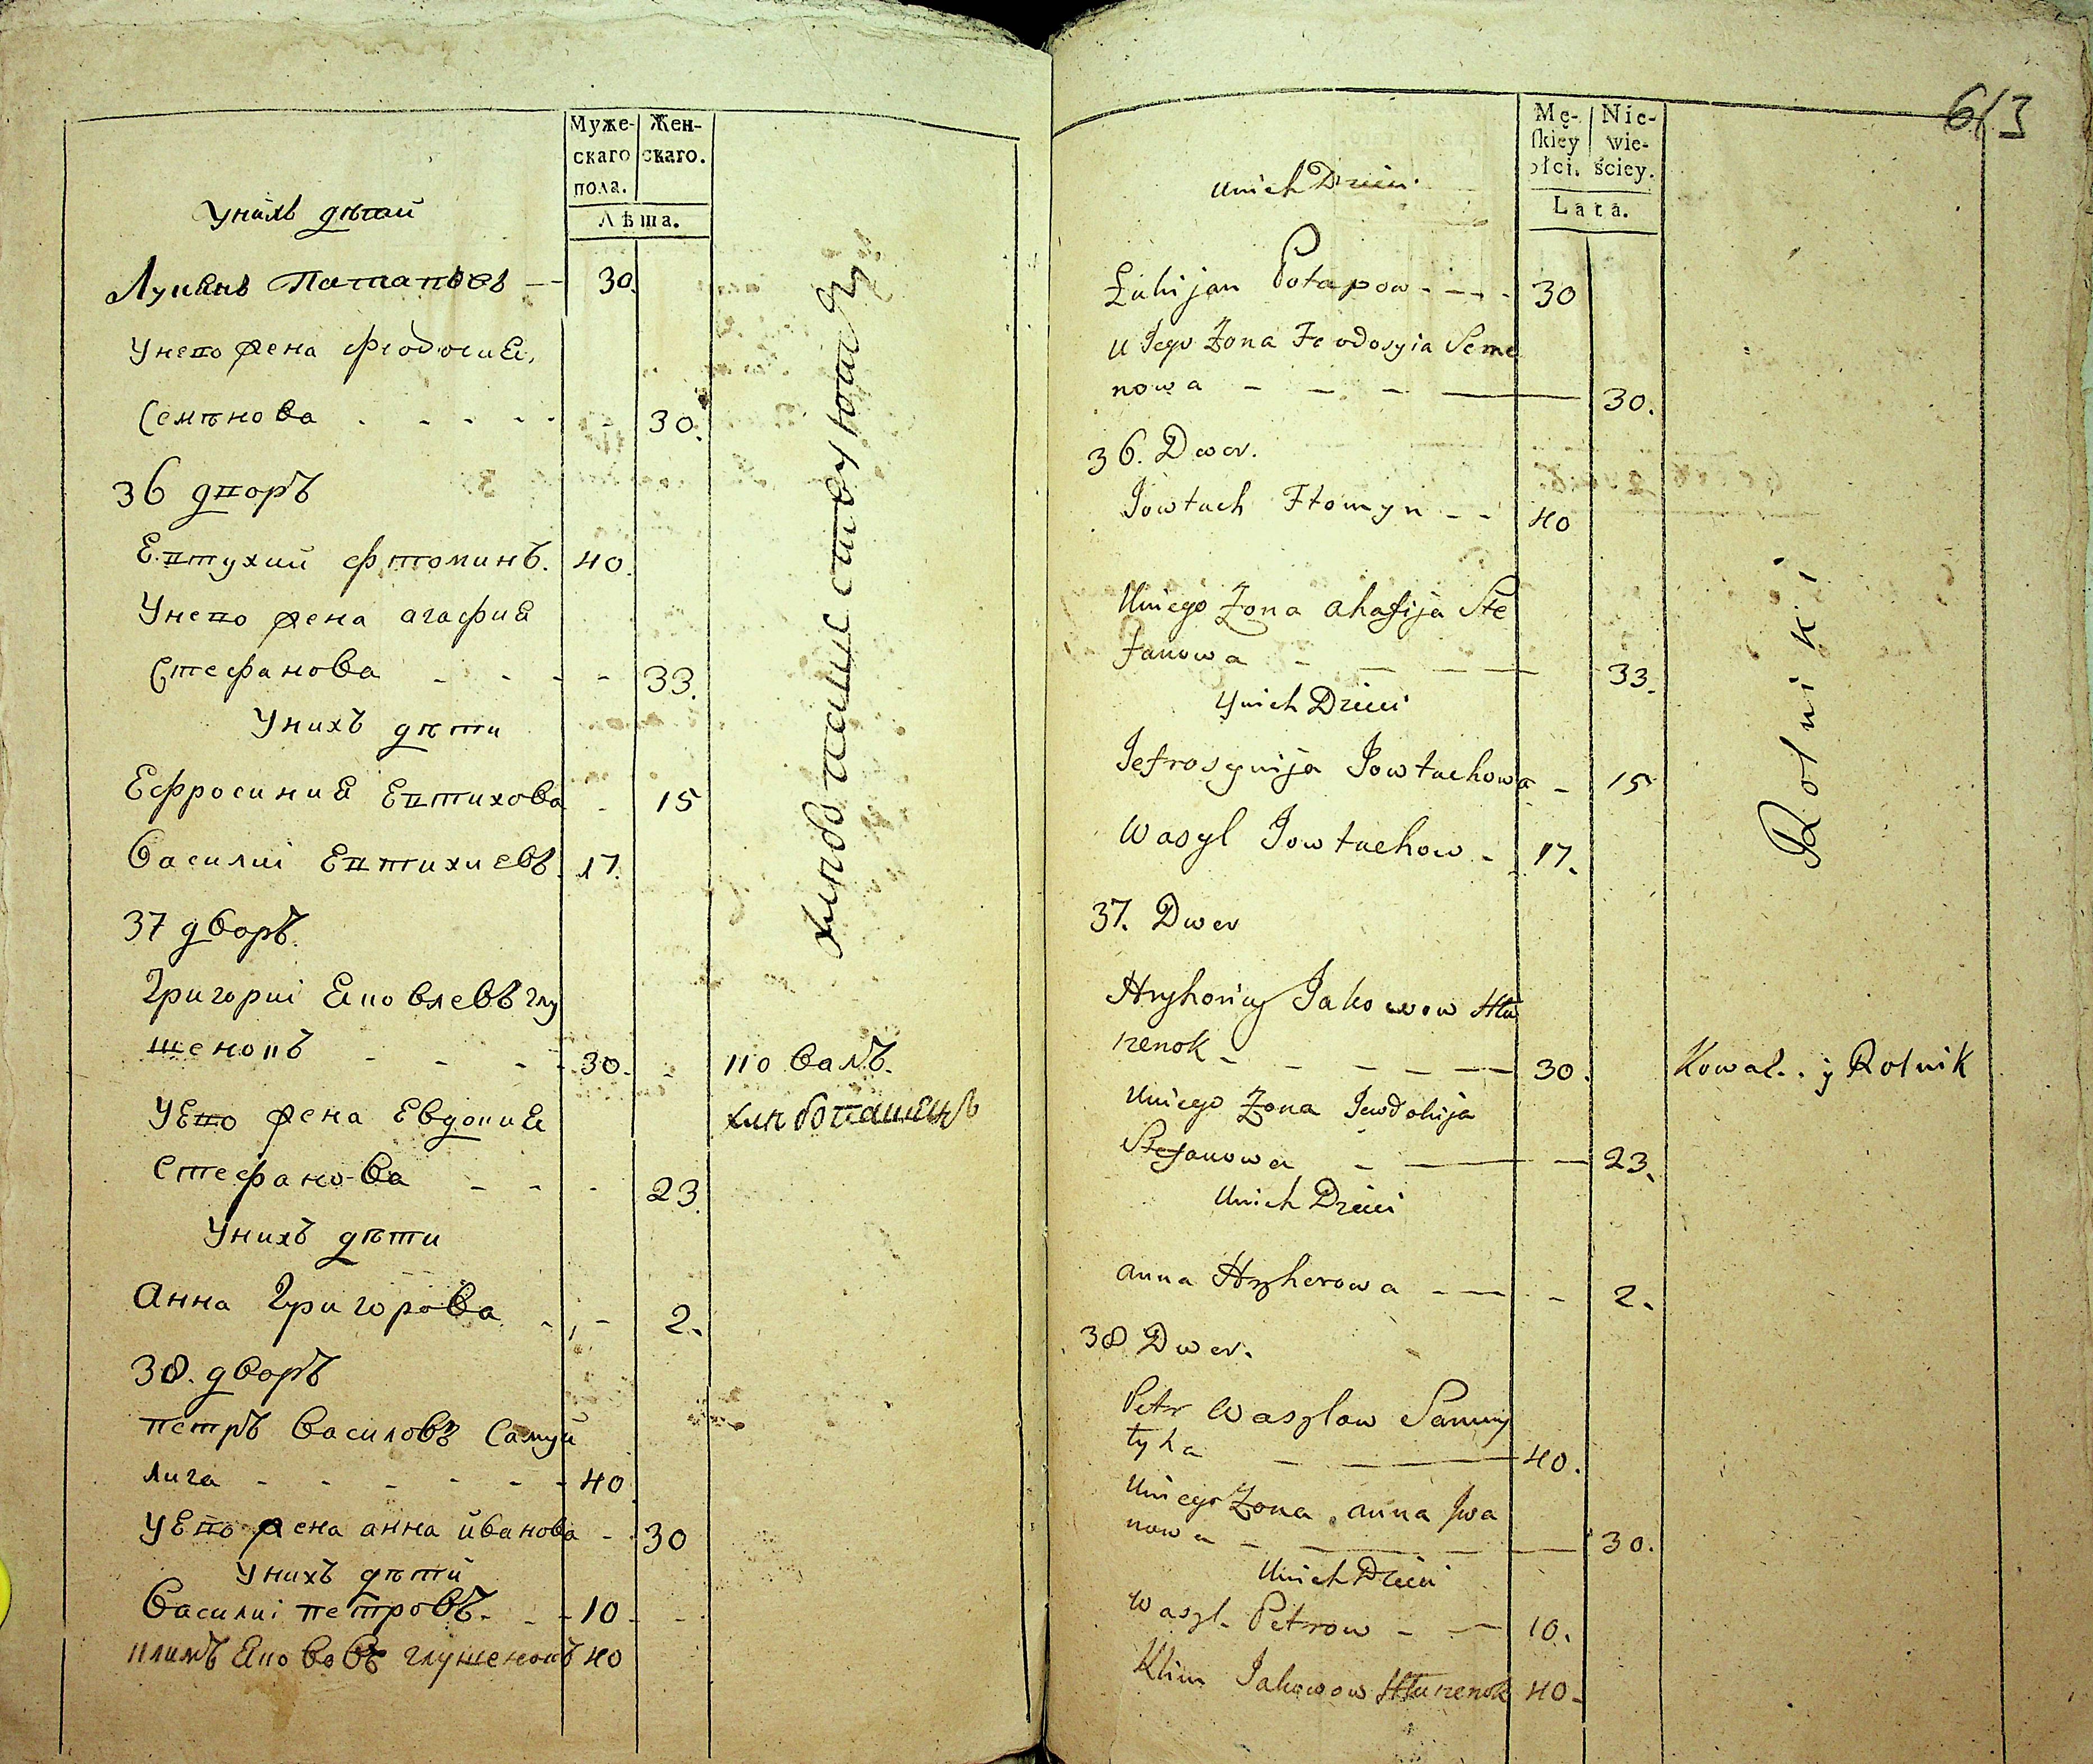 Муже-
скаго
пола.
Жен-
скаго.
Лѣта.
Унихъ дѣтей
Лукянъ Патаповъ — 30.
Унего жена феодосия
Семѣнова - - - - - 30.
36 дворъ
Евтухий фтоминъ. 40.
Унего жена агафия
Стефанова - - - - 33.
Унихъ дѣти
Ефросиния Евтихова - 15
Василиі Евтихиевъ. 17.
37 дворъ.
Григориі Яковлевъ глу
шенокъ - - - - 30. -
коваль.
Уего жена Евдокия
хлѣбопашецъ
Стефанова - - - 23.
Унихъ дѣти
Анна Григорова - - 2.
38. дворъ
петръ Василовъ Самуй
лига - - - - - - 40
Уего жена анна иванова - 30
Унихъ дѣти
Василиі петровъ. - - 10 -
климъ Яковавъ глушенокъ 40
613
Mę-
skiey
płci.
Nie-
wie-
ściey.
Lata.
Unich Dzieci.
Łukijan Potapow - - - - 30
U Jego Żona Feodosyia Seme
nowa - - - — 30.
36. Dwor.
Jowtuch Ftomyn - - 40
Uniego Żona ahafija Ste
fanowa - — — — 33.
Ynich Dzieci
Jefrosynija Jowtuchowa - 15
Wasyl Jowtuchow - 17.
37. Dwor
Hryhoriy Jakowow Hłu
szenok - - - - — 30.
Kowal.. y Rolnik
Uniego Żona Jewdokija
Stefanowa - — — 23.
Unich Dzieci
anna Hryhorowa - — - 2.
38 Dwor.
Petr Wasylow Samuy
łyha - — 40.
Uniego Żona anna Jwa
nowa - — 30.
Unich Dzieci
Wasyl Petrow - — 10.
Klim Jakowow Hłuszenok 40 -
Rolniki